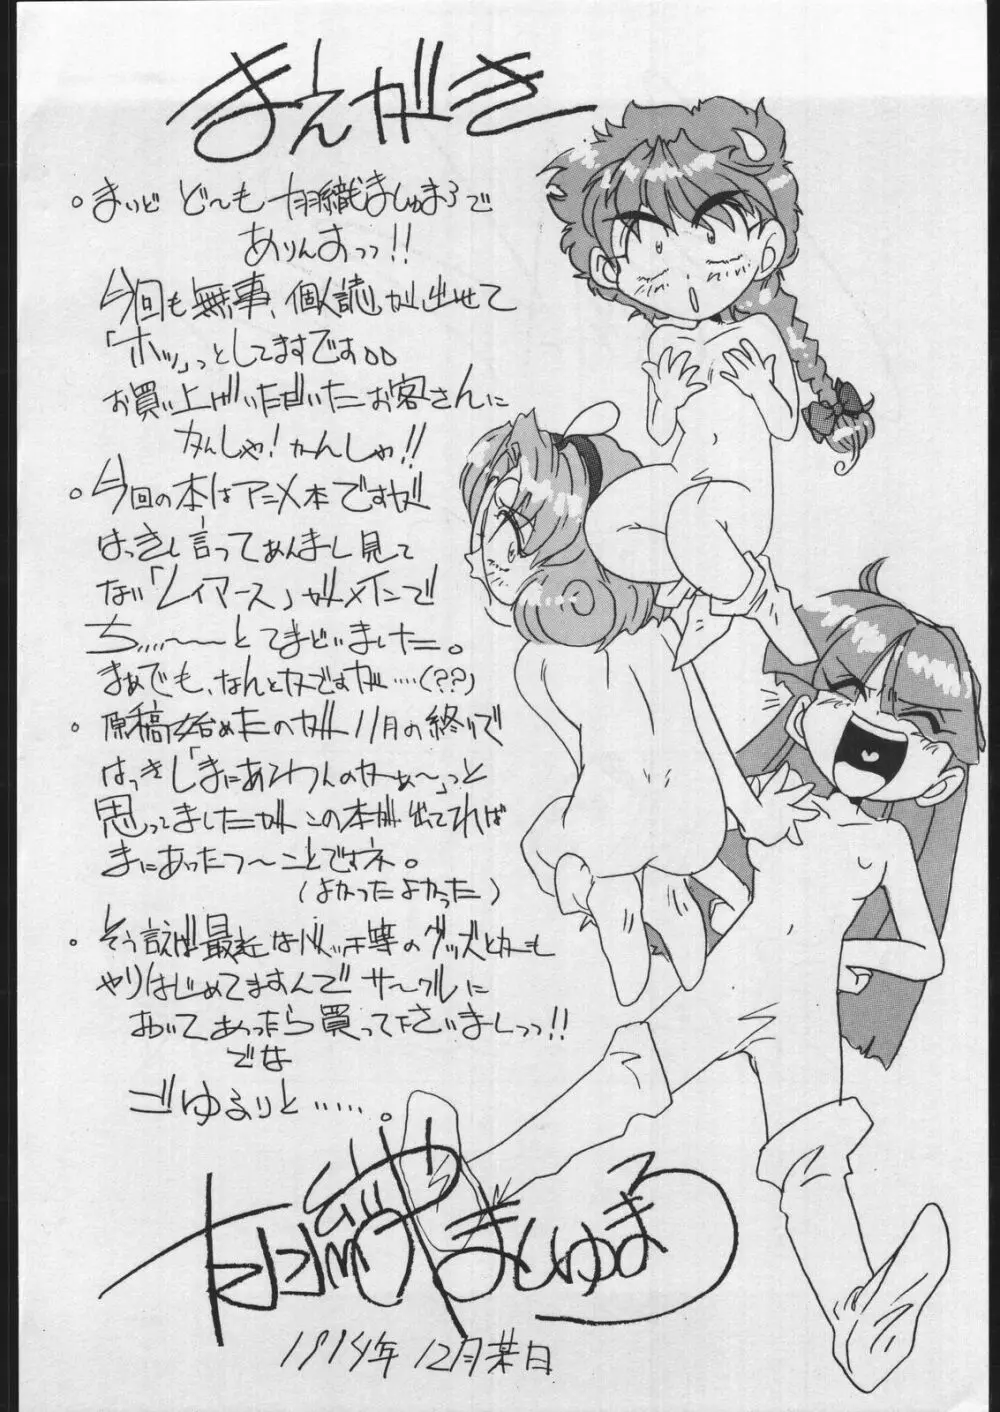 まえがき
。まいど ど〜も 羽織ましゅまろで
ありんすっっ!!
今回も無事、個人誌が出せて
「ホッ」っとしてますです。。
お買い上げいただいたお客さんに
かんしゃ!かんしゃ!!
。今回の本はアニメ本ですが
はっきし言ってあんまし見て
ない「レイアース」がメインで
ち……〜〜とてまどいました。
まぁでも、なんとかですが……(??)
。原稿始めたのが11月の終りで
はっきし「まにあわんのかぁ〜」っと
思ってましたがこの本が出てれば
まにあったつ〜ことですネ。
(よかったよかった)
。そう言えば最近はバッチ等のグッズとかも
やりはじめてますんでサークルに
おいてあったら買って下さいましっっ!!
でな
ごゆるりと……。
羽織ましゅまろ
1994年12月某日